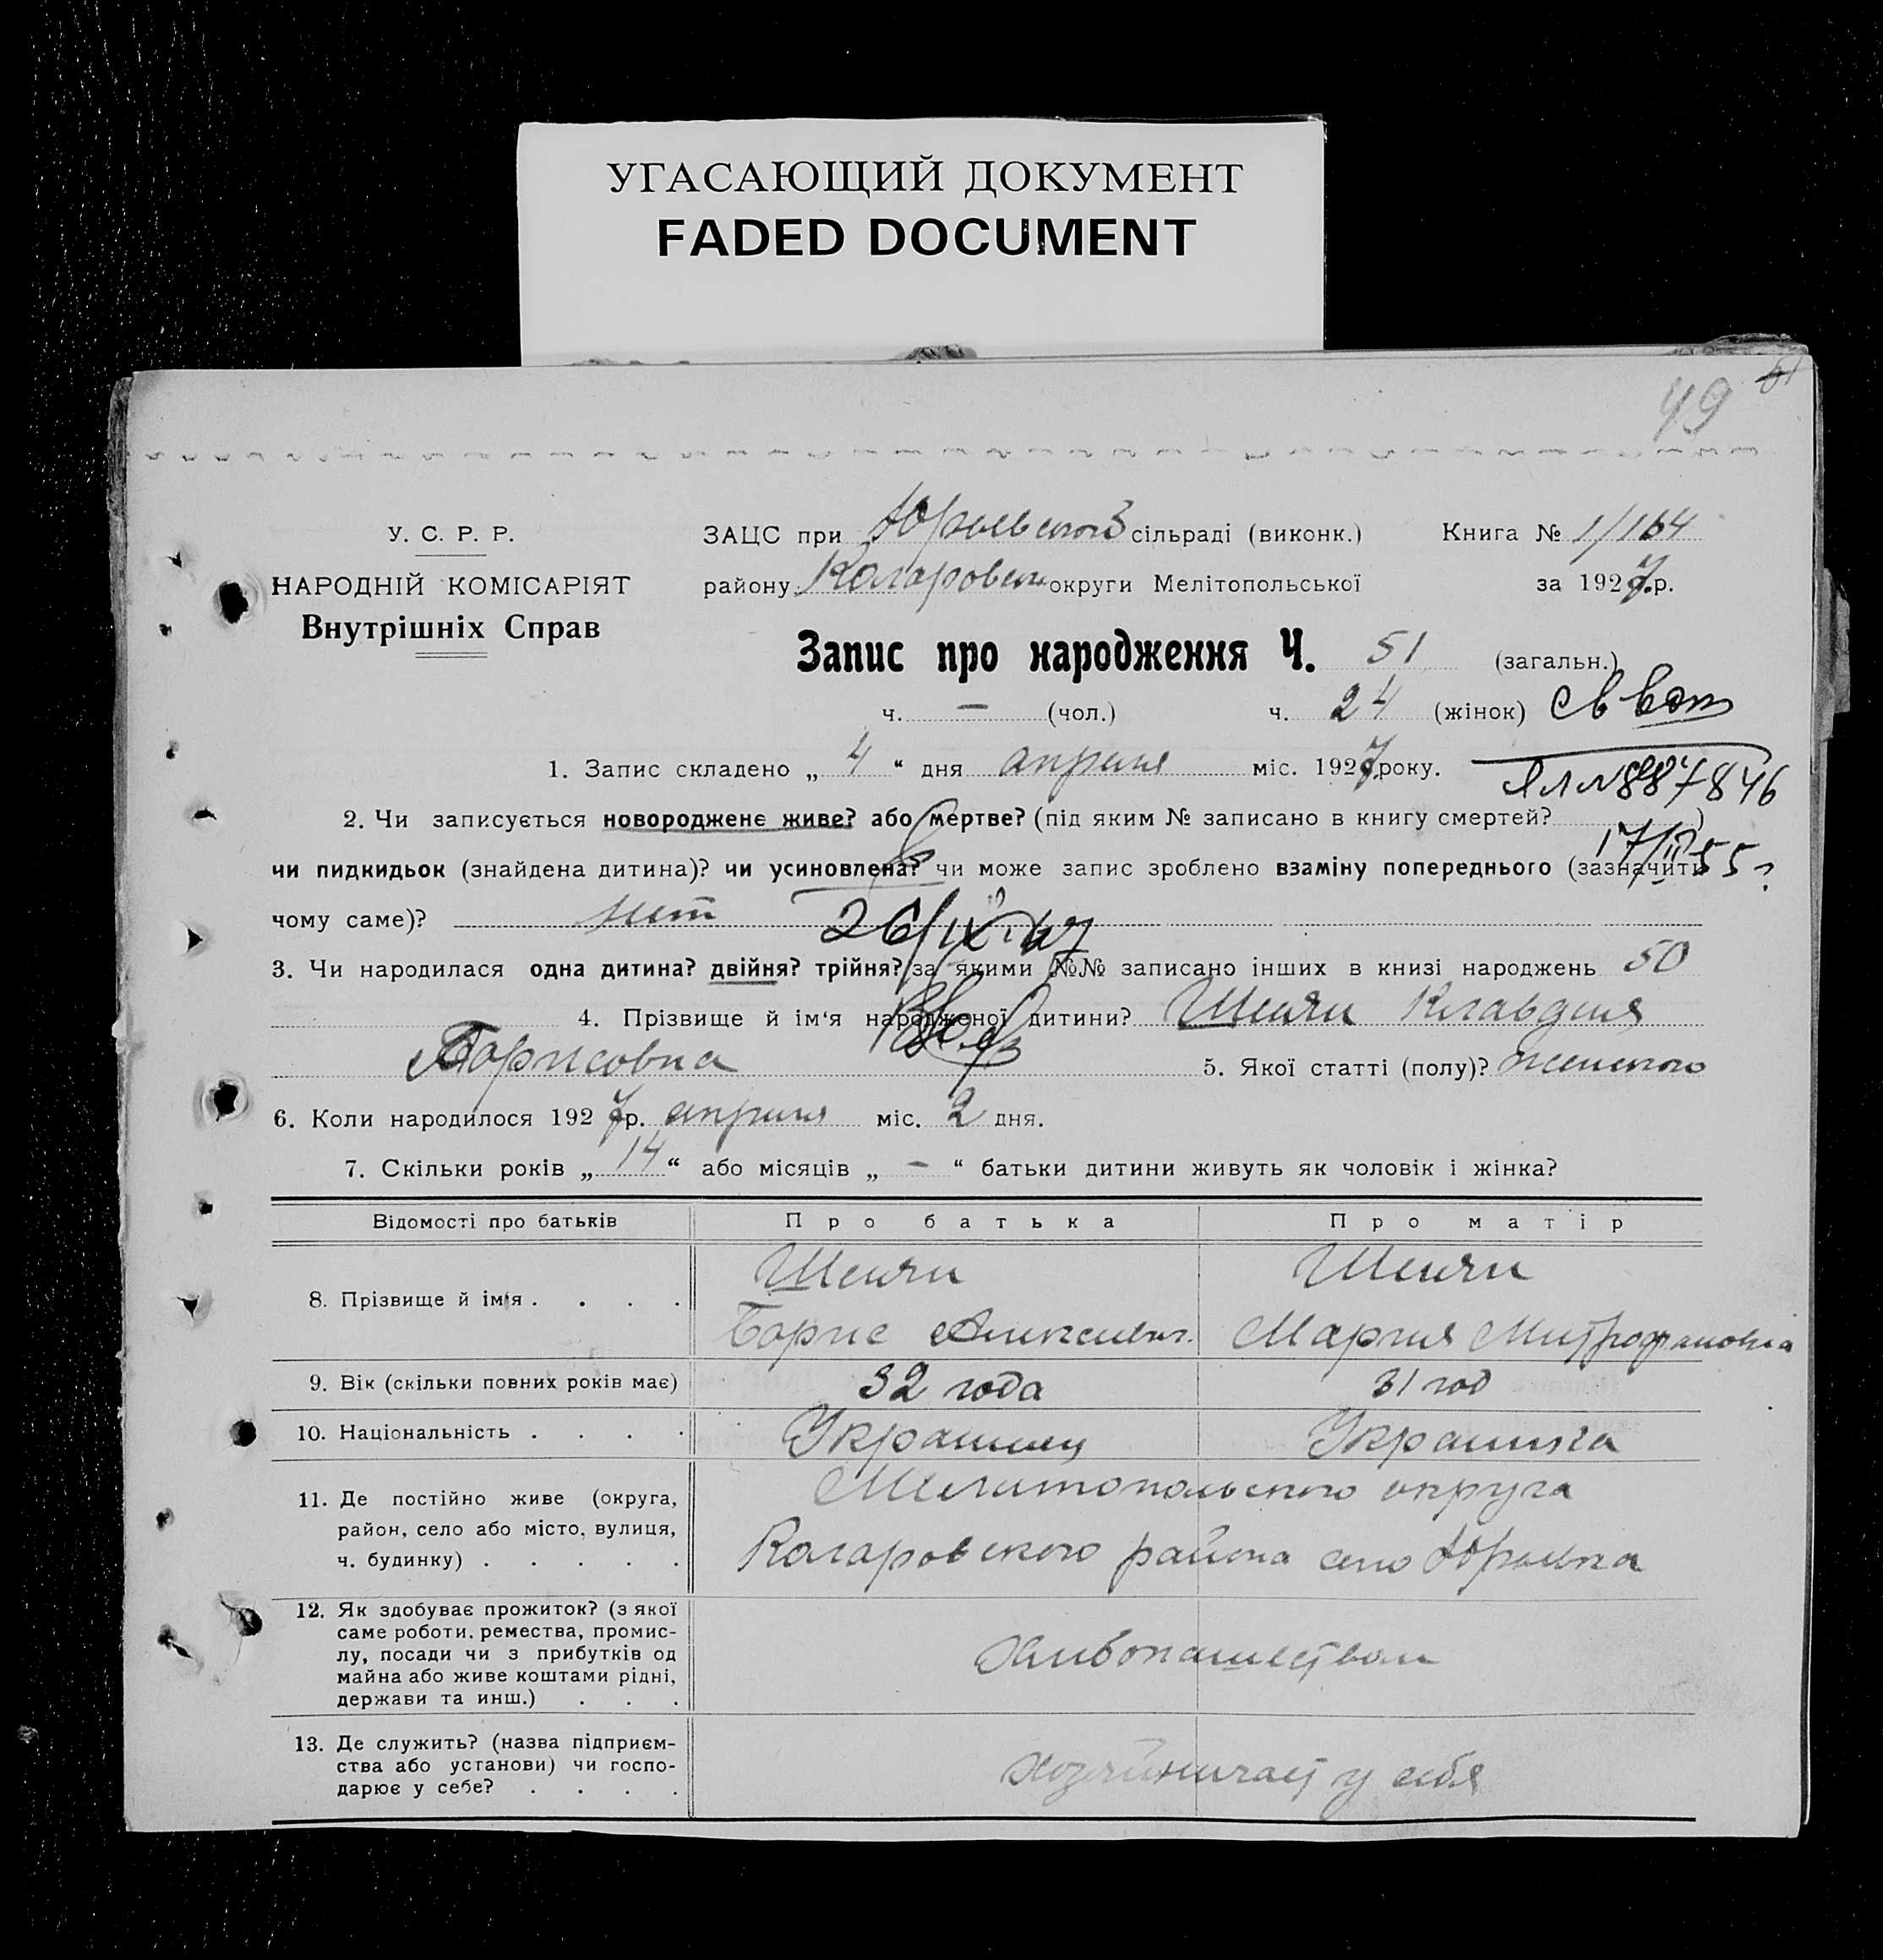 УГАСАЮЩИЙ ДОКУМЕНТ
FADED DOCUMENT
49
У. С. Р. Р.
НАРОДНІЙ КОМІСАРІЯТ
Внутрішніх Справ
ЗАЦС при Юрьевской сільраді (виконк.) Книга № 1/164
району Коларовск округи Мелітопольської за 1927 р.
Запис про народження Ч. 51 (загальн.)
ч. — (чол.) ч. 24 (жінок)
1. Запис складено „ 4 “ дня апреля міс. 1927 року.
ЯЛ № 887846
2. Чи записується новороджене живе? або мертве? (під яким № записано в книгу смертей? )
17/II 55
чи пидкидьок (знайдена дитина)? чи усиновлена? чи може запис зроблено взаміну попереднього (зазначити
чому саме)? нет
26/IX
3. Чи народилася одна дитина? двійня? трійня? за якими №№ записано інших в книзі народжень 50
4. Прізвище й ім‘я народженої дитини? Клавдия
Борисовна 5. Якої статті (полу)? женского
6. Коли народилося 1927 р. апреля міс. 2 дня.
7. Скільки років „ 14 “ або місяців „ — “ батьки дитини живуть як чоловік і жінка?
Відомості про батьків Про батька Про матір
8. Прізвище й ім‘я . . . .
Борис Алексеевич. Мария Митрофановна
9. Вік (скільки повних років має) 32 года 31 год
10. Національність . . . . Украинец Украинка
11. Де постійно живе (округа, район, село або місто, вулиця, ч. будинку) . . . . .
Мелитопольского округа
Коларовского района село Юрьевка
12. Як здобуває прожиток? (з якої
саме роботи, ремества, промис-
лу, посади чи з прибутків од
майна або живе коштами рідні,
держави та инш.) . . .
Хлебопашеством
13. Де служить? (назва підприєм-
ства або установи) чи госпо-
дарює у себе? . . . .
хозяйничает у себя